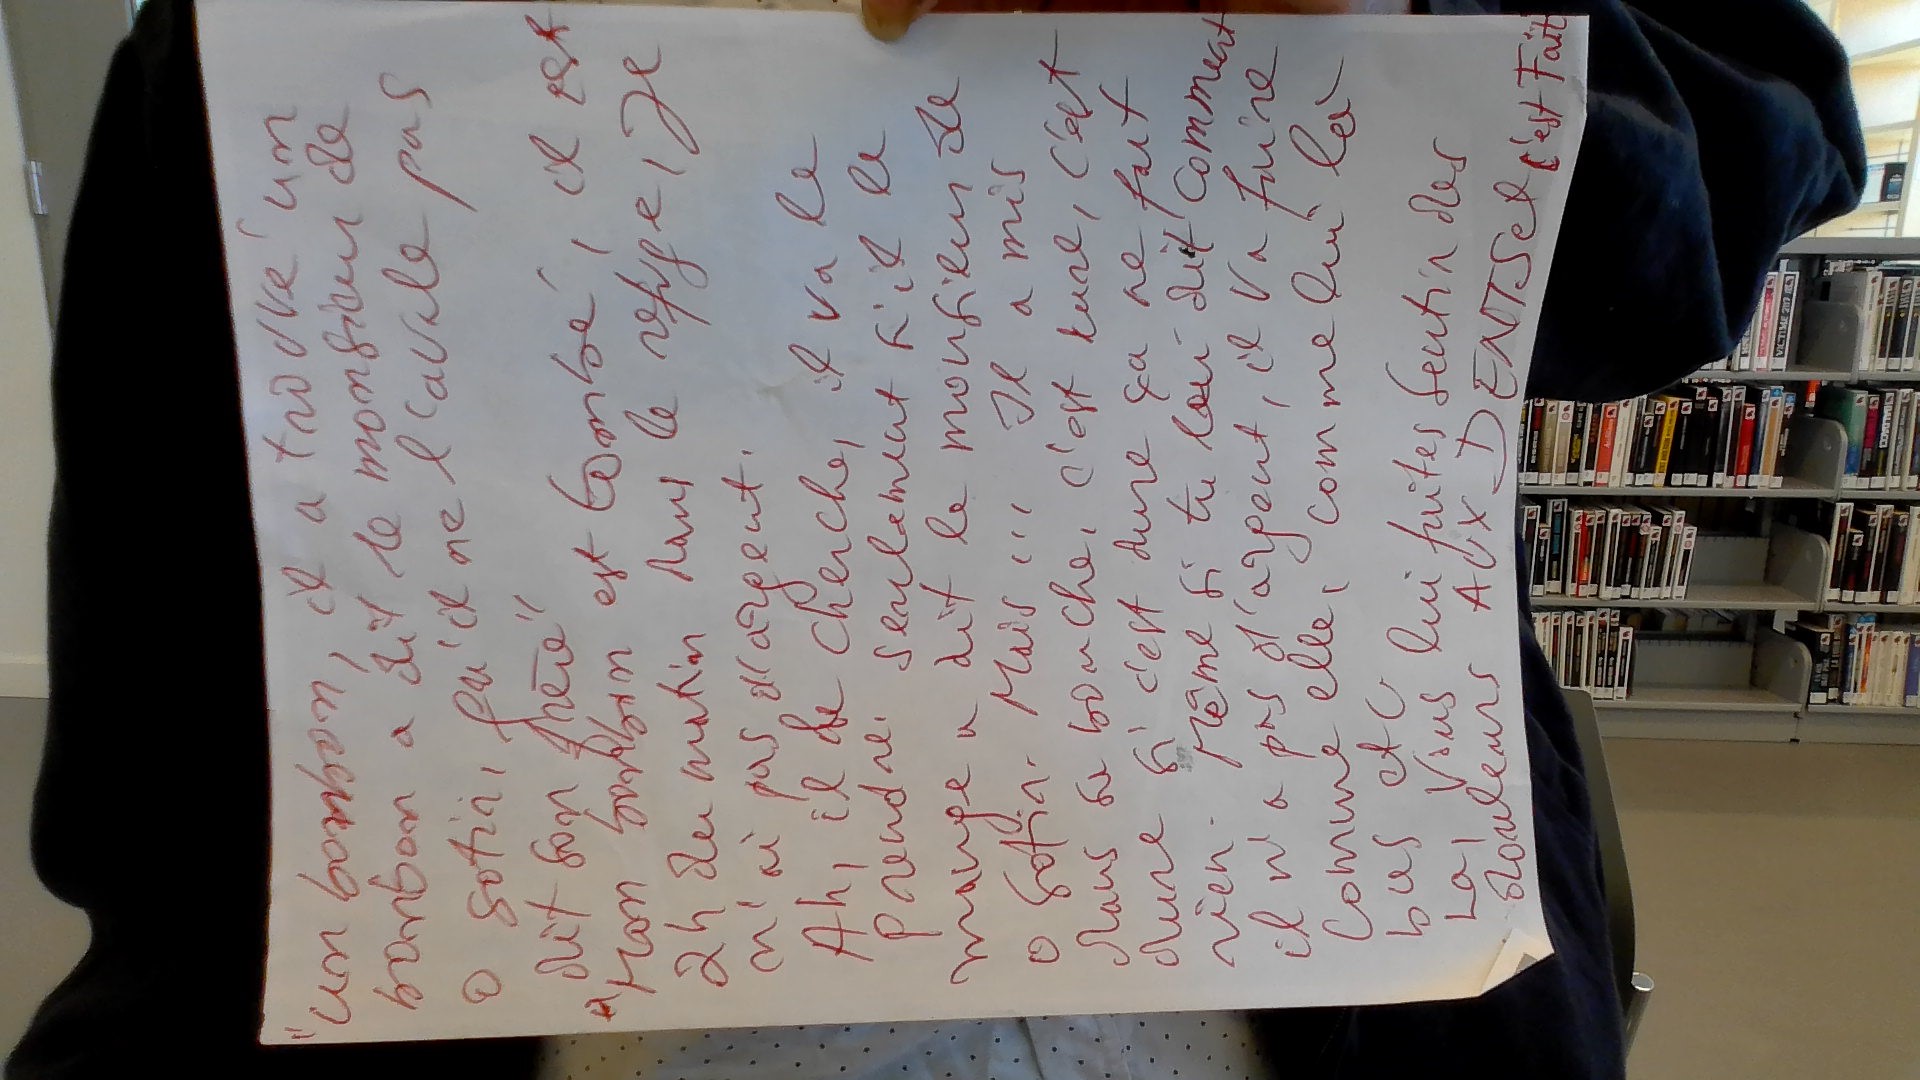 "un bonbon, il a trouvé un
bonbon a dit le monsieur de
O Sotin, qu'il ne l'avale pas
dit son frère"
"Mon bonbon est tombé, il est
2h du matin dans le refuge, Je
n'ai pas d'argent.
Ah, il le cherche, il va le
prendre. Seulement s'il le
mange a dit le monsieur de
O Sotin. Mais ... Il a mis
dans sa bouche, c'est dure, c'est
dure si c'est dure ça ne fait
rien. Même si tu lui dit comment
il n'a pas d'argent, il va faire
Comme elle, comme lui là
bas etc
La, Vous lui faites sentir des
douleurs AUX DENTS et c'est Fait